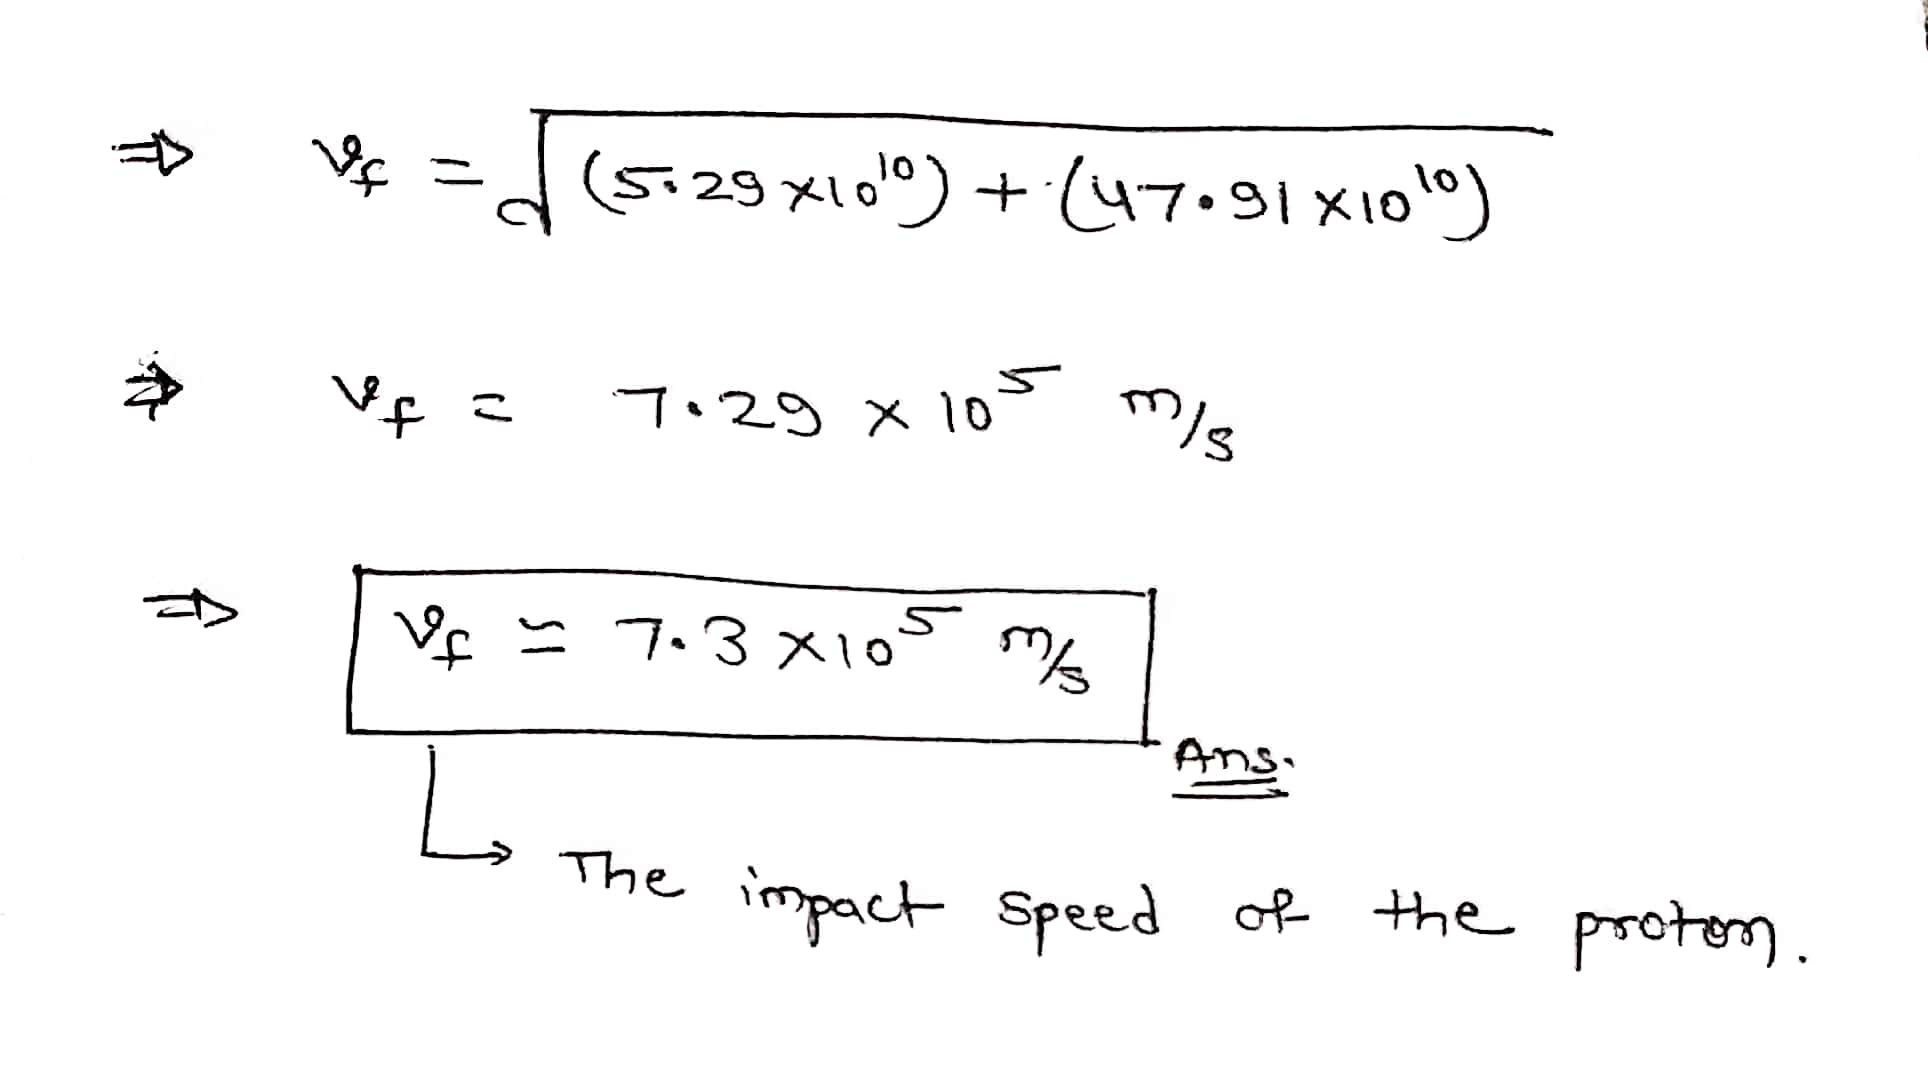 ⇒ v_f = √(5.29 × 10^10) + (47.91 × 10^10)
⇒ v_f = 7.29 × 10^5 m/s
⇒ v_f ≃ 7.3 × 10^5 m/s
Ans.
↳ The impact speed of the proton.